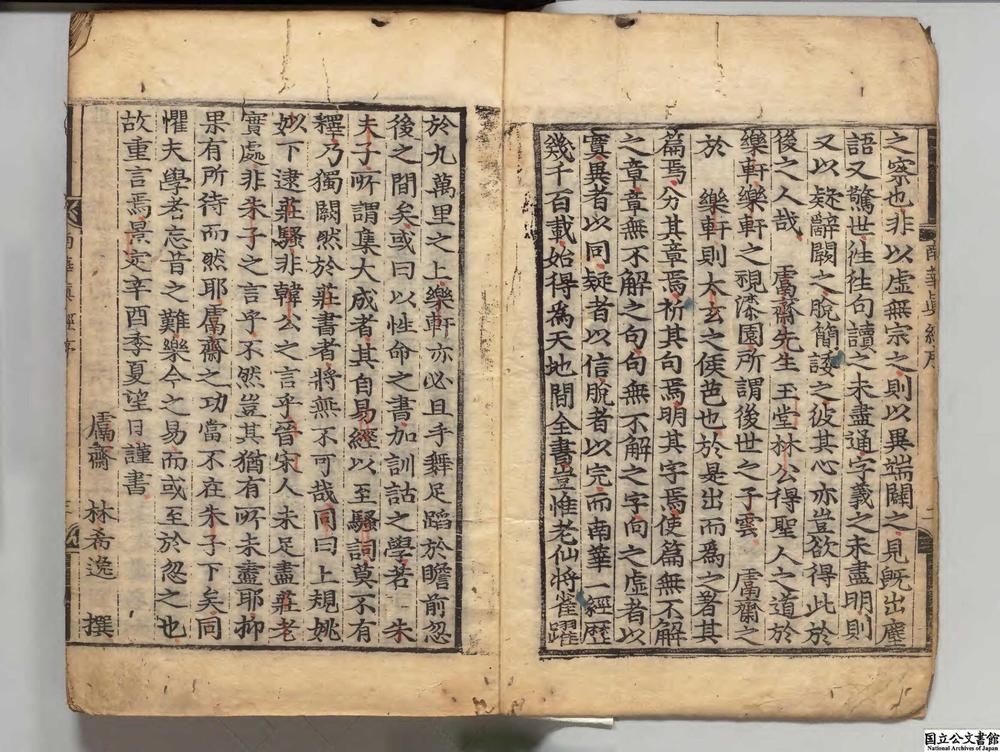 之察也非以虛無宗之則以異端闢之見既出塵
語又驚世往往句讀之未盡通字義之未盡明則
又以疑辭闕之脫簡諉之彼其心亦豈欲得此於
後之人哉　鬳齋先生玉堂林公得聖人之道於
樂軒樂軒之視漆園所謂後世之子雲　鬳齋之
於　樂軒則太玄之侯芭也於是出而為之著其
篇焉分其章焉析其句焉明其字焉使篇無不解
之章章無不解之句句無不解之字向之虛者以
實異者以同疑者以信脫者以完而南華一經歷
幾千百載始得為天地間全書豈惟老仙將雀躍
於九萬里之上樂軒亦必且手舞足蹈於瞻前忽
後之間矣或曰以性命之書加訓詁之學若　朱
夫子所謂集大成者其自易經以至騷詞莫不有
釋乃獨闕然於莊書者將無不可哉同曰上規姚
姒下逮莊騷非韓公之言乎晉宋人未足盡莊老
實處非朱子之言乎不然豈其猶有所未盡耶抑
果有所待而然耶鬳齋之功當不在朱子下矣同
懼夫學者忘昔之難樂今之易而或至於忽之也
故重言焉景定辛酉季夏望日謹書
鬳齋　林希逸　撰
南華真經序
二
国立公文書館
National Archives of Japan